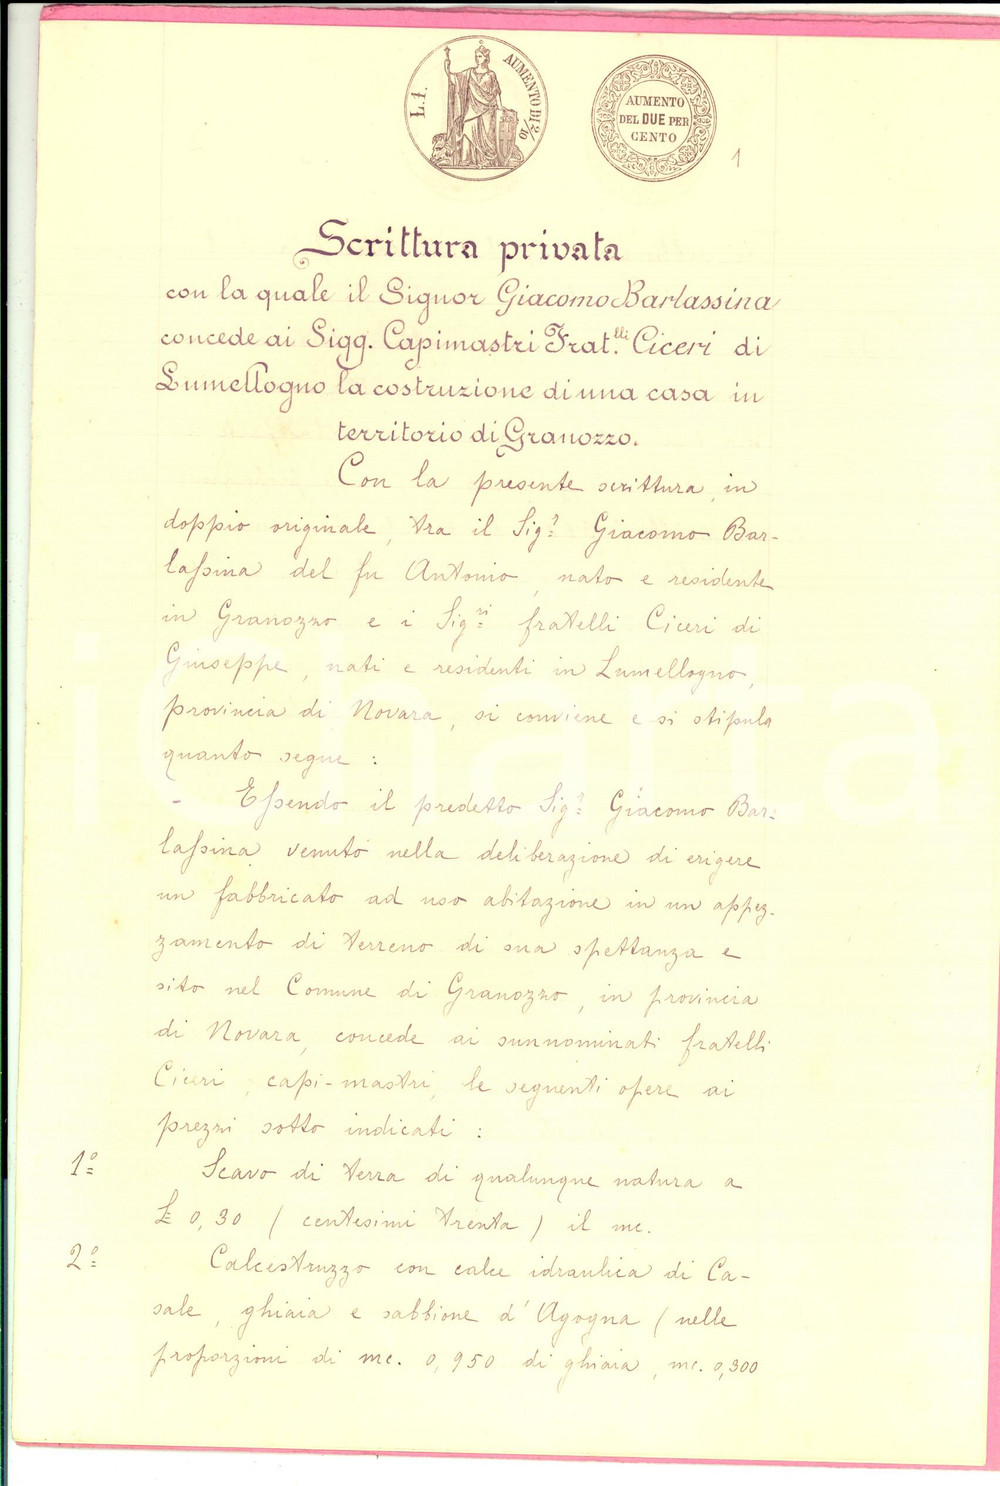 L.1.
AUMENTO DI 2/10
AUMENTO
DEL DUE PER
CENTO
1
Scrittura privata
con la quale il Signor Giacomo Barlassina
concede ai Sigg. Capimastri Frat.lli Ciceri di
Lumellogno la costruzione di una casa in
territorio di Granozzo.
Con la presente scrittura, in
doppio originale, tra il Sig.r Giacomo Bar-
lassina del fu Antonio, nato e residente
in Granozzo e i Sig.ri fratelli Ciceri di
Giuseppe, nati e residenti in Lumellogno,
provincia di Novara, si conviene e si stipula
quanto segue :
- Essendo il predetto Sig.r Giacomo Bar-
lassina venuto nella deliberazione di erigere
un fabbricato ad uso abitazione in un appez-
zamento di terreno di sua spettanza e
sito nel Comune di Granozzo, in provincia
di Novara, concede ai sunnominati fratelli
Ciceri, capi-mastri, le seguenti opere ai
prezzi sotto indicati :
1º Scavo di terra di qualunque natura a
£ 0,30 ( centesimi trenta ) il mc.
2º Calcestruzzo con calce idraulica di Ca-
sale, ghiaia e sabbione d'Agogna ( nelle
proporzioni di mc. 0,950 di ghiaia, mc. 0,300